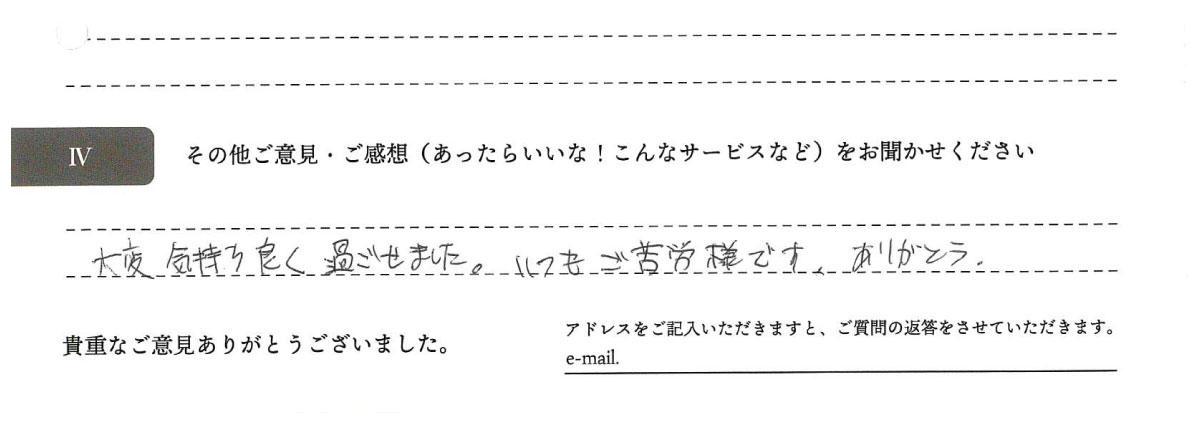 Ⅳ
その他ご意見・ご感想（あったらいいな！こんなサービスなど）をお聞かせください
大変気持ち良く過ごせました。いつもご苦労様です、ありがとう.
貴重なご意見ありがとうございました。
アドレスをご記入いただきますと、ご質問の返答をさせていただきます。
e-mail.